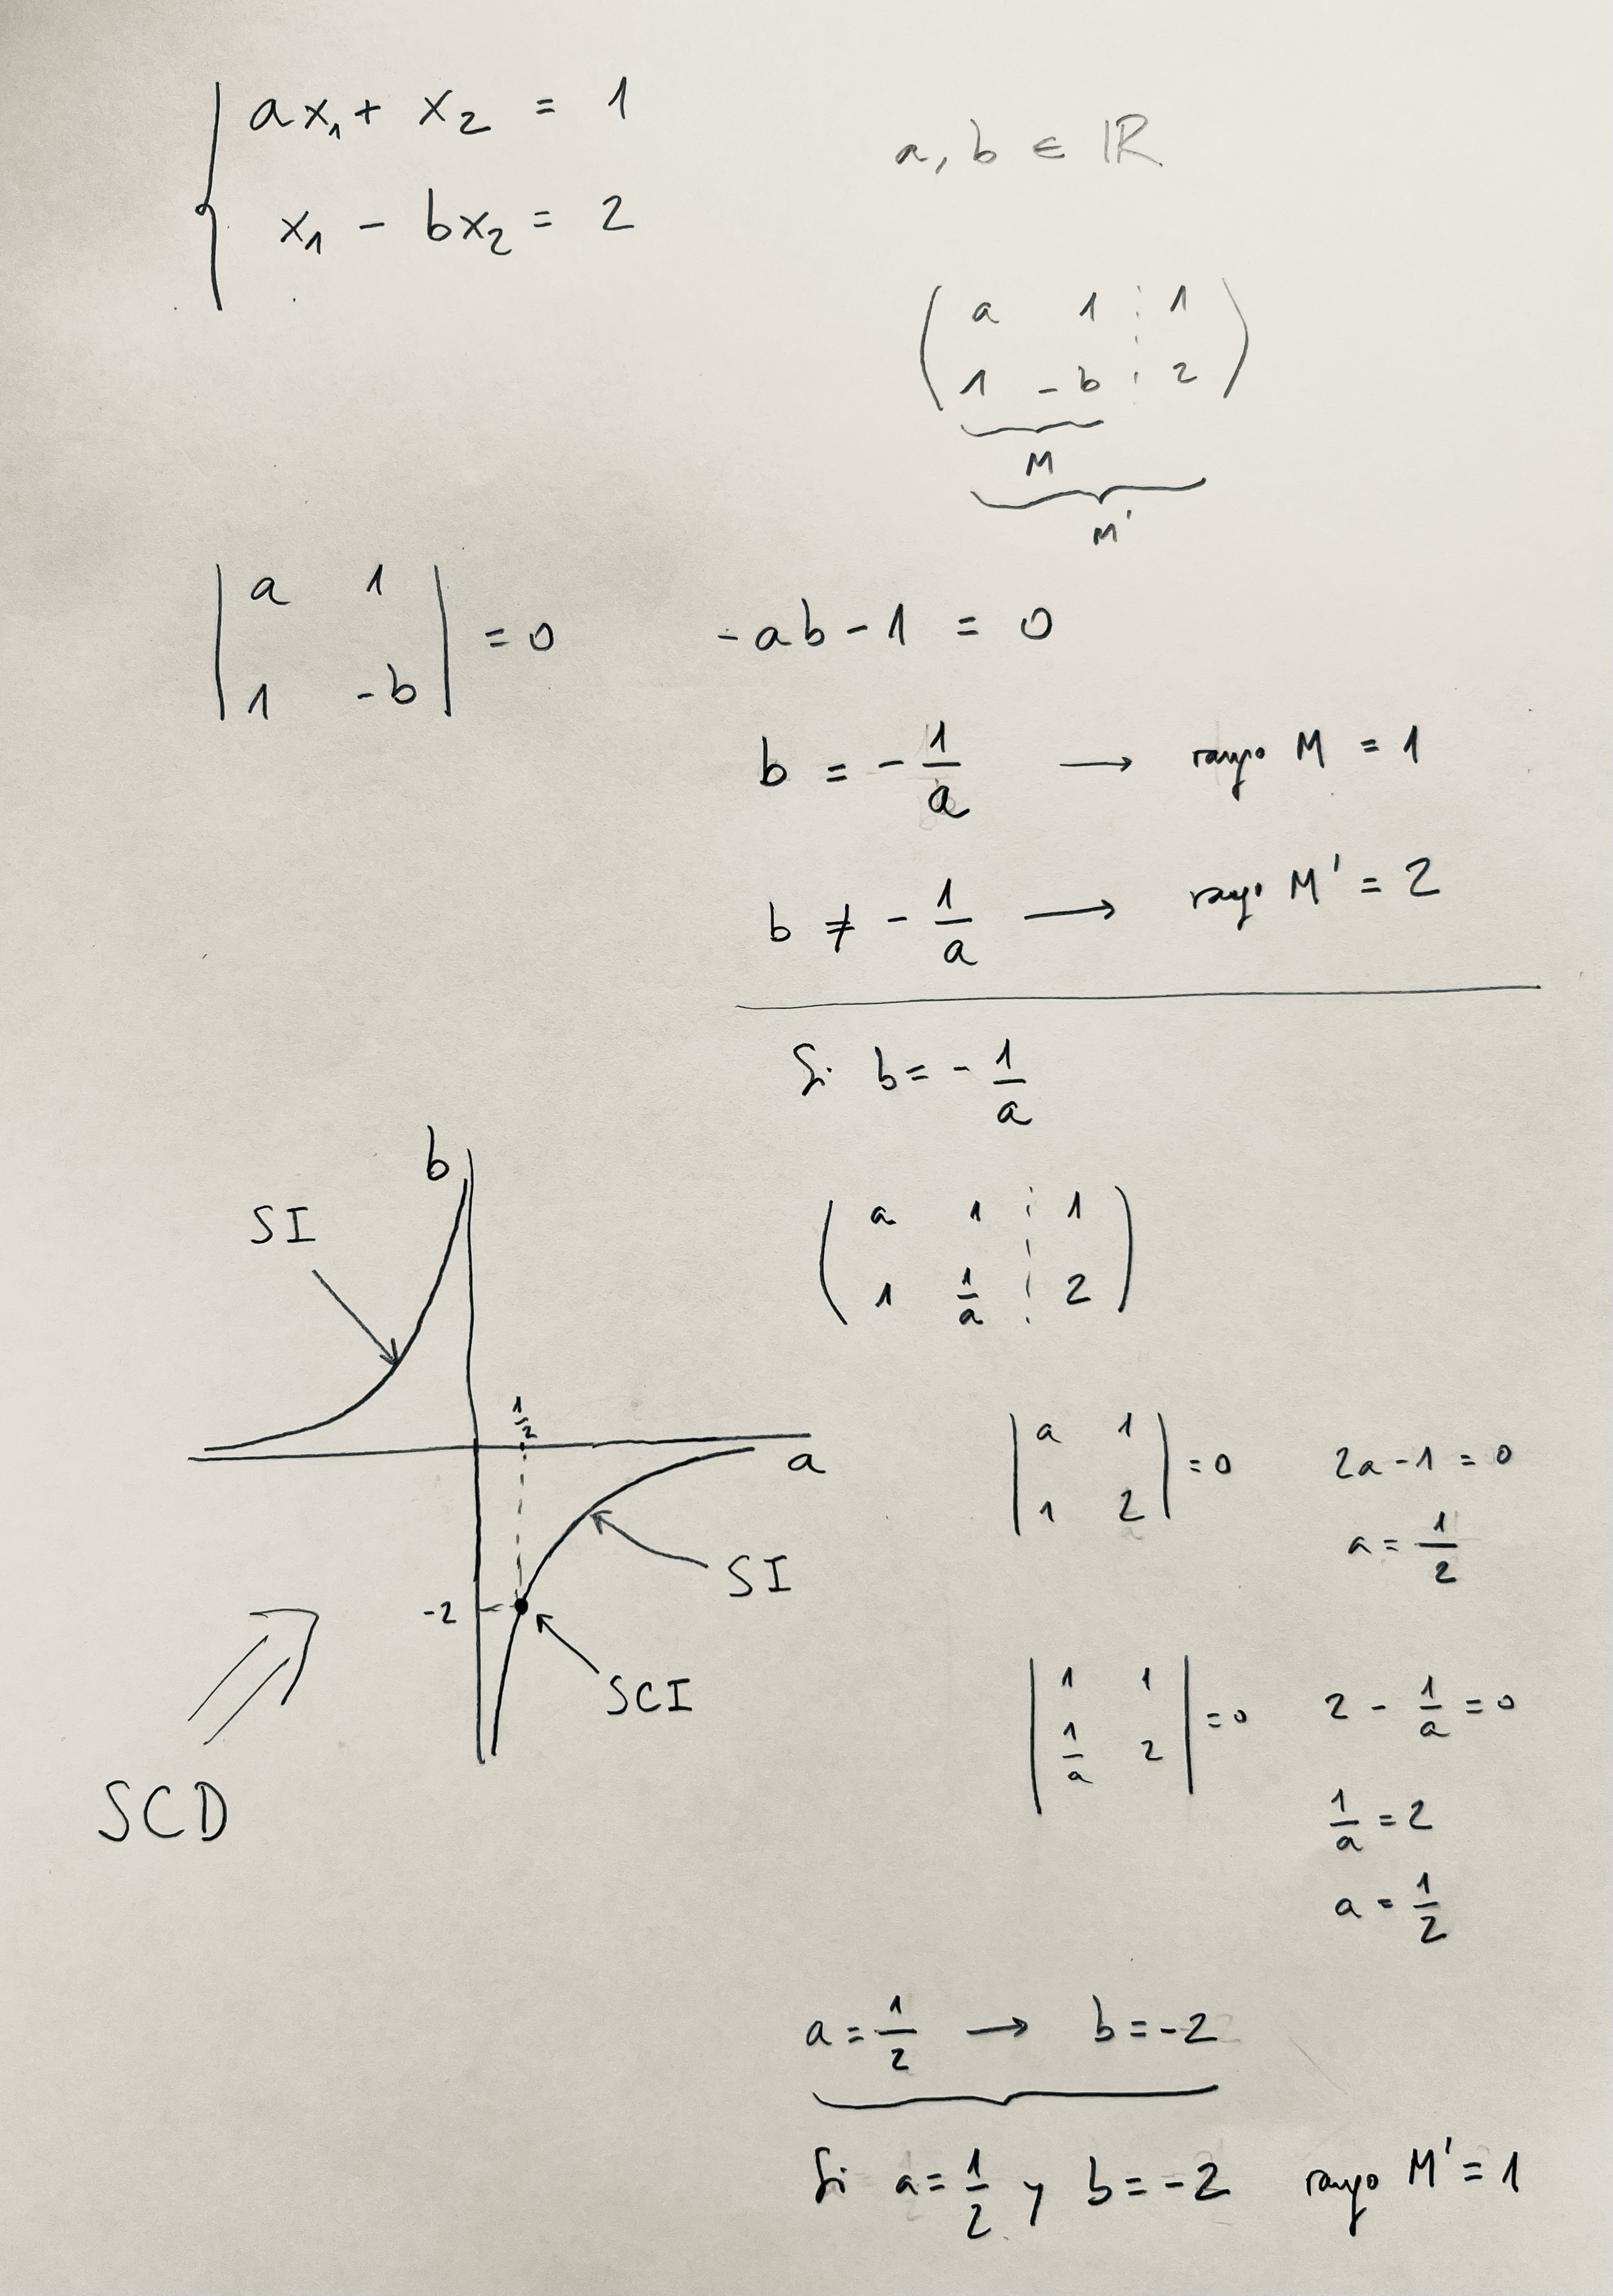 ax₁ + x₂ = 1
x₁ - bx₂ = 2
a, b ∈ ℝ
a 1 ⋮ 1
1 -b ⋮ 2
M
M'
a 1
1 -b
= 0
-ab - 1 = 0
b = - 1/a → rango M = 1
b ≠ - 1/a → rango M' = 2
Si b = - 1/a
a 1 ⋮ 1
1 1/a ⋮ 2
a 1
1 2
= 0
2a - 1 = 0
a = 1/2
1 1
1/a 2
= 0
2 - 1/a = 0
1/a = 2
a = 1/2
a = 1/2 → b = -2
Si a = 1/2 y b = -2 rango M' = 1
b
SI
1/2
a
SI
-2
SCI
SCD